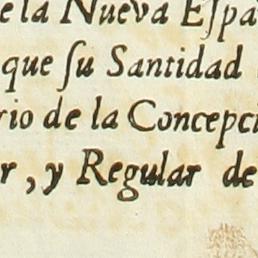 e la Nueva Eſpa
que ſu Santidad
rio de la Concepci
r, y Regular de